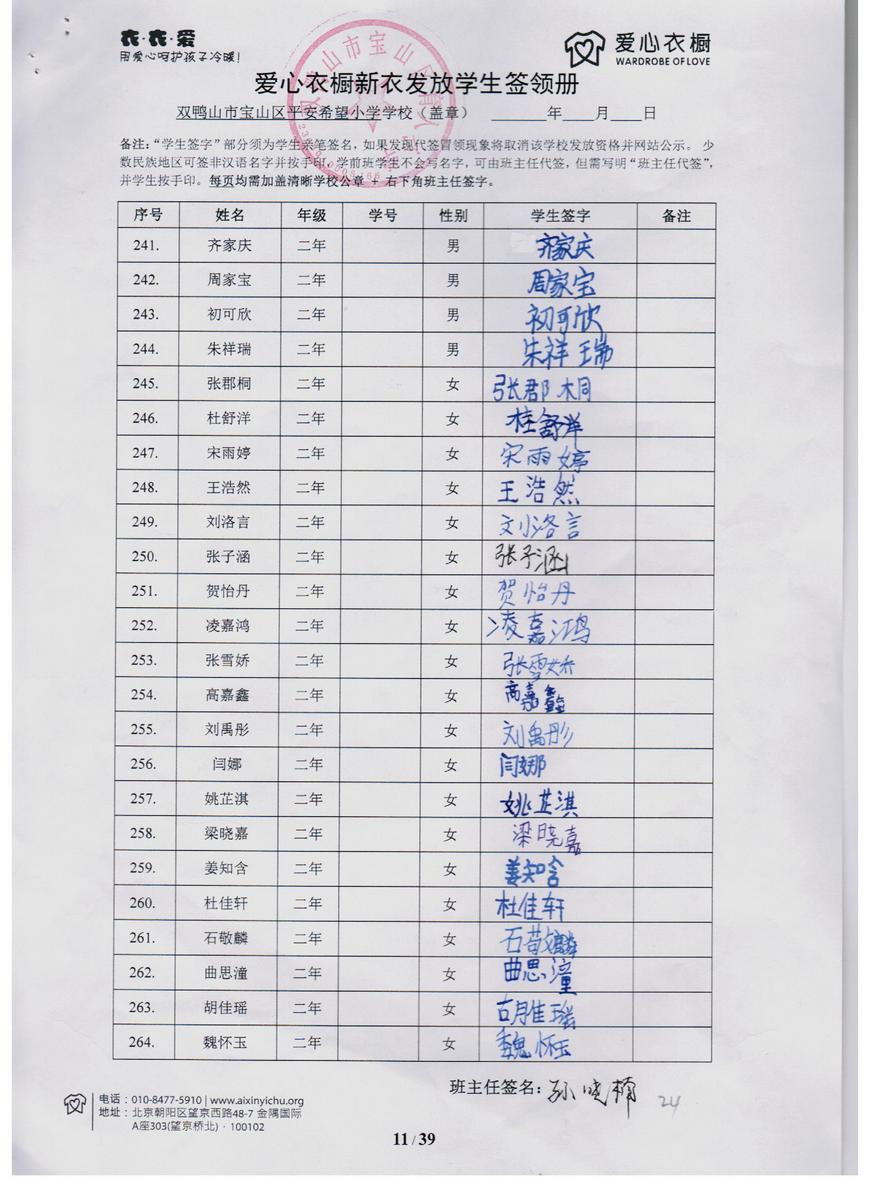 衣·衣·爱
用爱心呵护孩子冷暖!
爱心衣橱
WARDROBE OF LOVE
爱心衣橱新衣发放学生签领册
双鸭山市宝山区平安希望小学学校（盖章） ____年____月____日
备注：“学生签字”部分须为学生亲笔签名，如果发现代签冒领现象将取消该学校发放资格并网站公示。 少
数民族地区可签非汉语名字并按手印，学前班学生不会写名字，可由班主任代签，但需写明“班主任代签”，
并学生按手印。每页均需加盖清晰学校公章 + 右下角班主任签字。
序号 姓名 年级 学号 性别 学生签字 备注
241. 齐家庆 二年 男 齐家庆
242. 周家宝 二年 男 周家宝
243. 初可欣 二年 男 初可欣
244. 朱祥瑞 二年 男 朱祥瑞
245. 张郡桐 二年 女 张郡桐
246. 杜舒洋 二年 女 桂舒洋
247. 宋雨婷 二年 女 宋雨婷
248. 王浩然 二年 女 王浩然
249. 刘洛言 二年 女 刘洛言
250. 张子涵 二年 女 张子涵
251. 贺怡丹 二年 女 贺怡丹
252. 凌嘉鸿 二年 女 凌嘉鸿
253. 张雪娇 二年 女 张雪娇
254. 高嘉鑫 二年 女 高嘉鑫
255. 刘禹彤 二年 女 刘禹彤
256. 闫娜 二年 女 闫娜
257. 姚芷淇 二年 女 姚芷淇
258. 梁晓嘉 二年 女 梁晓嘉
259. 姜知含 二年 女 姜知含
260. 杜佳轩 二年 女 杜佳轩
261. 石敬麟 二年 女 石敬麟
262. 曲思潼 二年 女 曲思潼
263. 胡佳瑶 二年 女 胡佳瑶
264. 魏怀玉 二年 女 魏怀玉
班主任签名：孙晓楠 24
电话：010-8477-5910 | www.aixinyichu.org
地址：北京朝阳区望京西路48-7 金隅国际
A座303(望京桥北)·100102
11 / 39